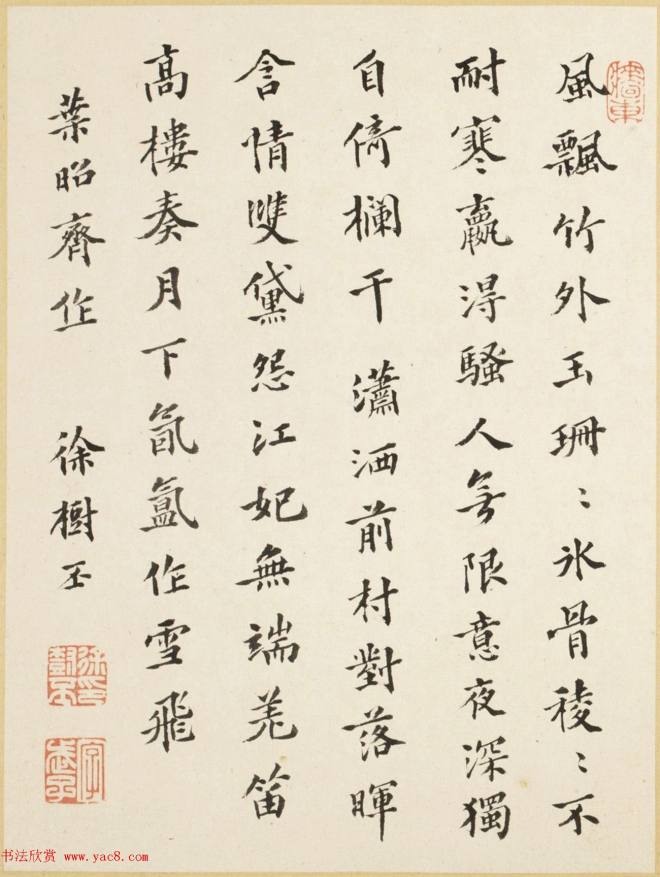 墻東
風飄竹外玉珊〻氷骨稜〻不
耐寒贏得騷人無限意夜深獨
自倚欄干瀟洒前村對落暉
含情雙黛怨江妃無端羌笛
高樓奏月下氤氳作雪飛
葉昭齊作 徐樹丕
徐樹丕印
字武子
书法欣赏 www.yac8.com